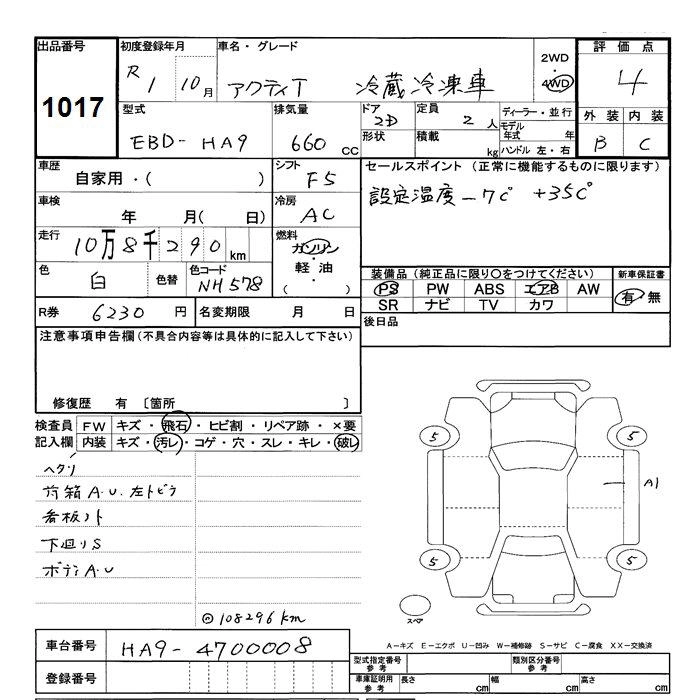 出品番号 初度登録年月 車名・グレード 2WD 評価点
1017 R 1 10月 アクティT 冷蔵冷凍車 ・4WD 4
型式 排気量 ドア 定員 ディーラー・並行 外装 内装
EBD-HA9 660cc 2D 2人 モデル年式 年 B C
形状 積載 kg ハンドル 左・右
車歴 シフト セールスポイント (正常に機能するものに限ります)
自家用・( ) F5 設定温度-7℃ +35℃
車検 冷房
年 月( 日) AC
走行 燃料
10万8千290km ガソリン
・
軽油
・
( )
色 色替 色コード 装備品(純正品に限り○をつけてください) 新車保証書
白 NH578 PS PW ABS エアB AW 有・無
SR ナビ TV カワ
R券 6230円 名変期限 月 日 後日品
注意事項申告欄(不具合内容等は具体的に記入して下さい)
修復歴 有 〔箇所 〕
検査員 FW キズ・飛石・ヒビ割・リペア跡・×要
記入欄 内装 キズ・汚レ・コゲ・穴・スレ・キレ・破レ
ヘクリ
荷箱A.U.左トビラ
看板ノト
下回りS
ボディA.U
5 5
A1
5 5
スペア
◎108296km
車台番号 HA9-4700008
A-キズ E-エクボ U-凹み W-補修跡 S-サビ C-腐食 XX-交換済
登録番号
型式指定番号 参考 類別区分番号 参考
車庫証明用 参考 長さ cm 幅 cm 高さ cm